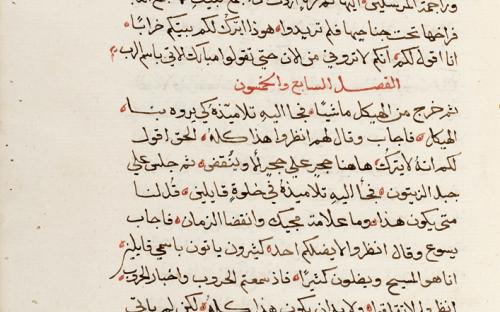 فراخها تحت جناحيها فلم تريدوا هوذا اترك لكم بيتكم خرابًا
انا اقول لكم انكم لا تروني من الان حتي تقولوا مبارك الاتي باسم الرب
الفصل السابع والخمسون
ثم خرج من الهيكل ماشيًا فجا اليه تلاميذه كي يروه بنا
الهيكل فاجاب وقال لهم انظروا هذا كله الحق اقول
لكم انه لا يترك هاهنا حجر علي حجر الا وينتقض ثم جلس علي
جبل الزيتون فجا اليه تلاميذه في خلوةٍ قايلين قل لنا
متي يكون هذا وما علامة مجيك وانقضا الزمان فاجاب
يسوع وقال انظروا لا يضلكم احد كثيرون ياتون باسمي قايلين
انا هو المسيح ويضلون كثيرًا فاذ سمعتم الحروب واخبار الحروب
انظروا لا تقلقوا ولا بد ان يكون هذا كله لكن لم ياتي